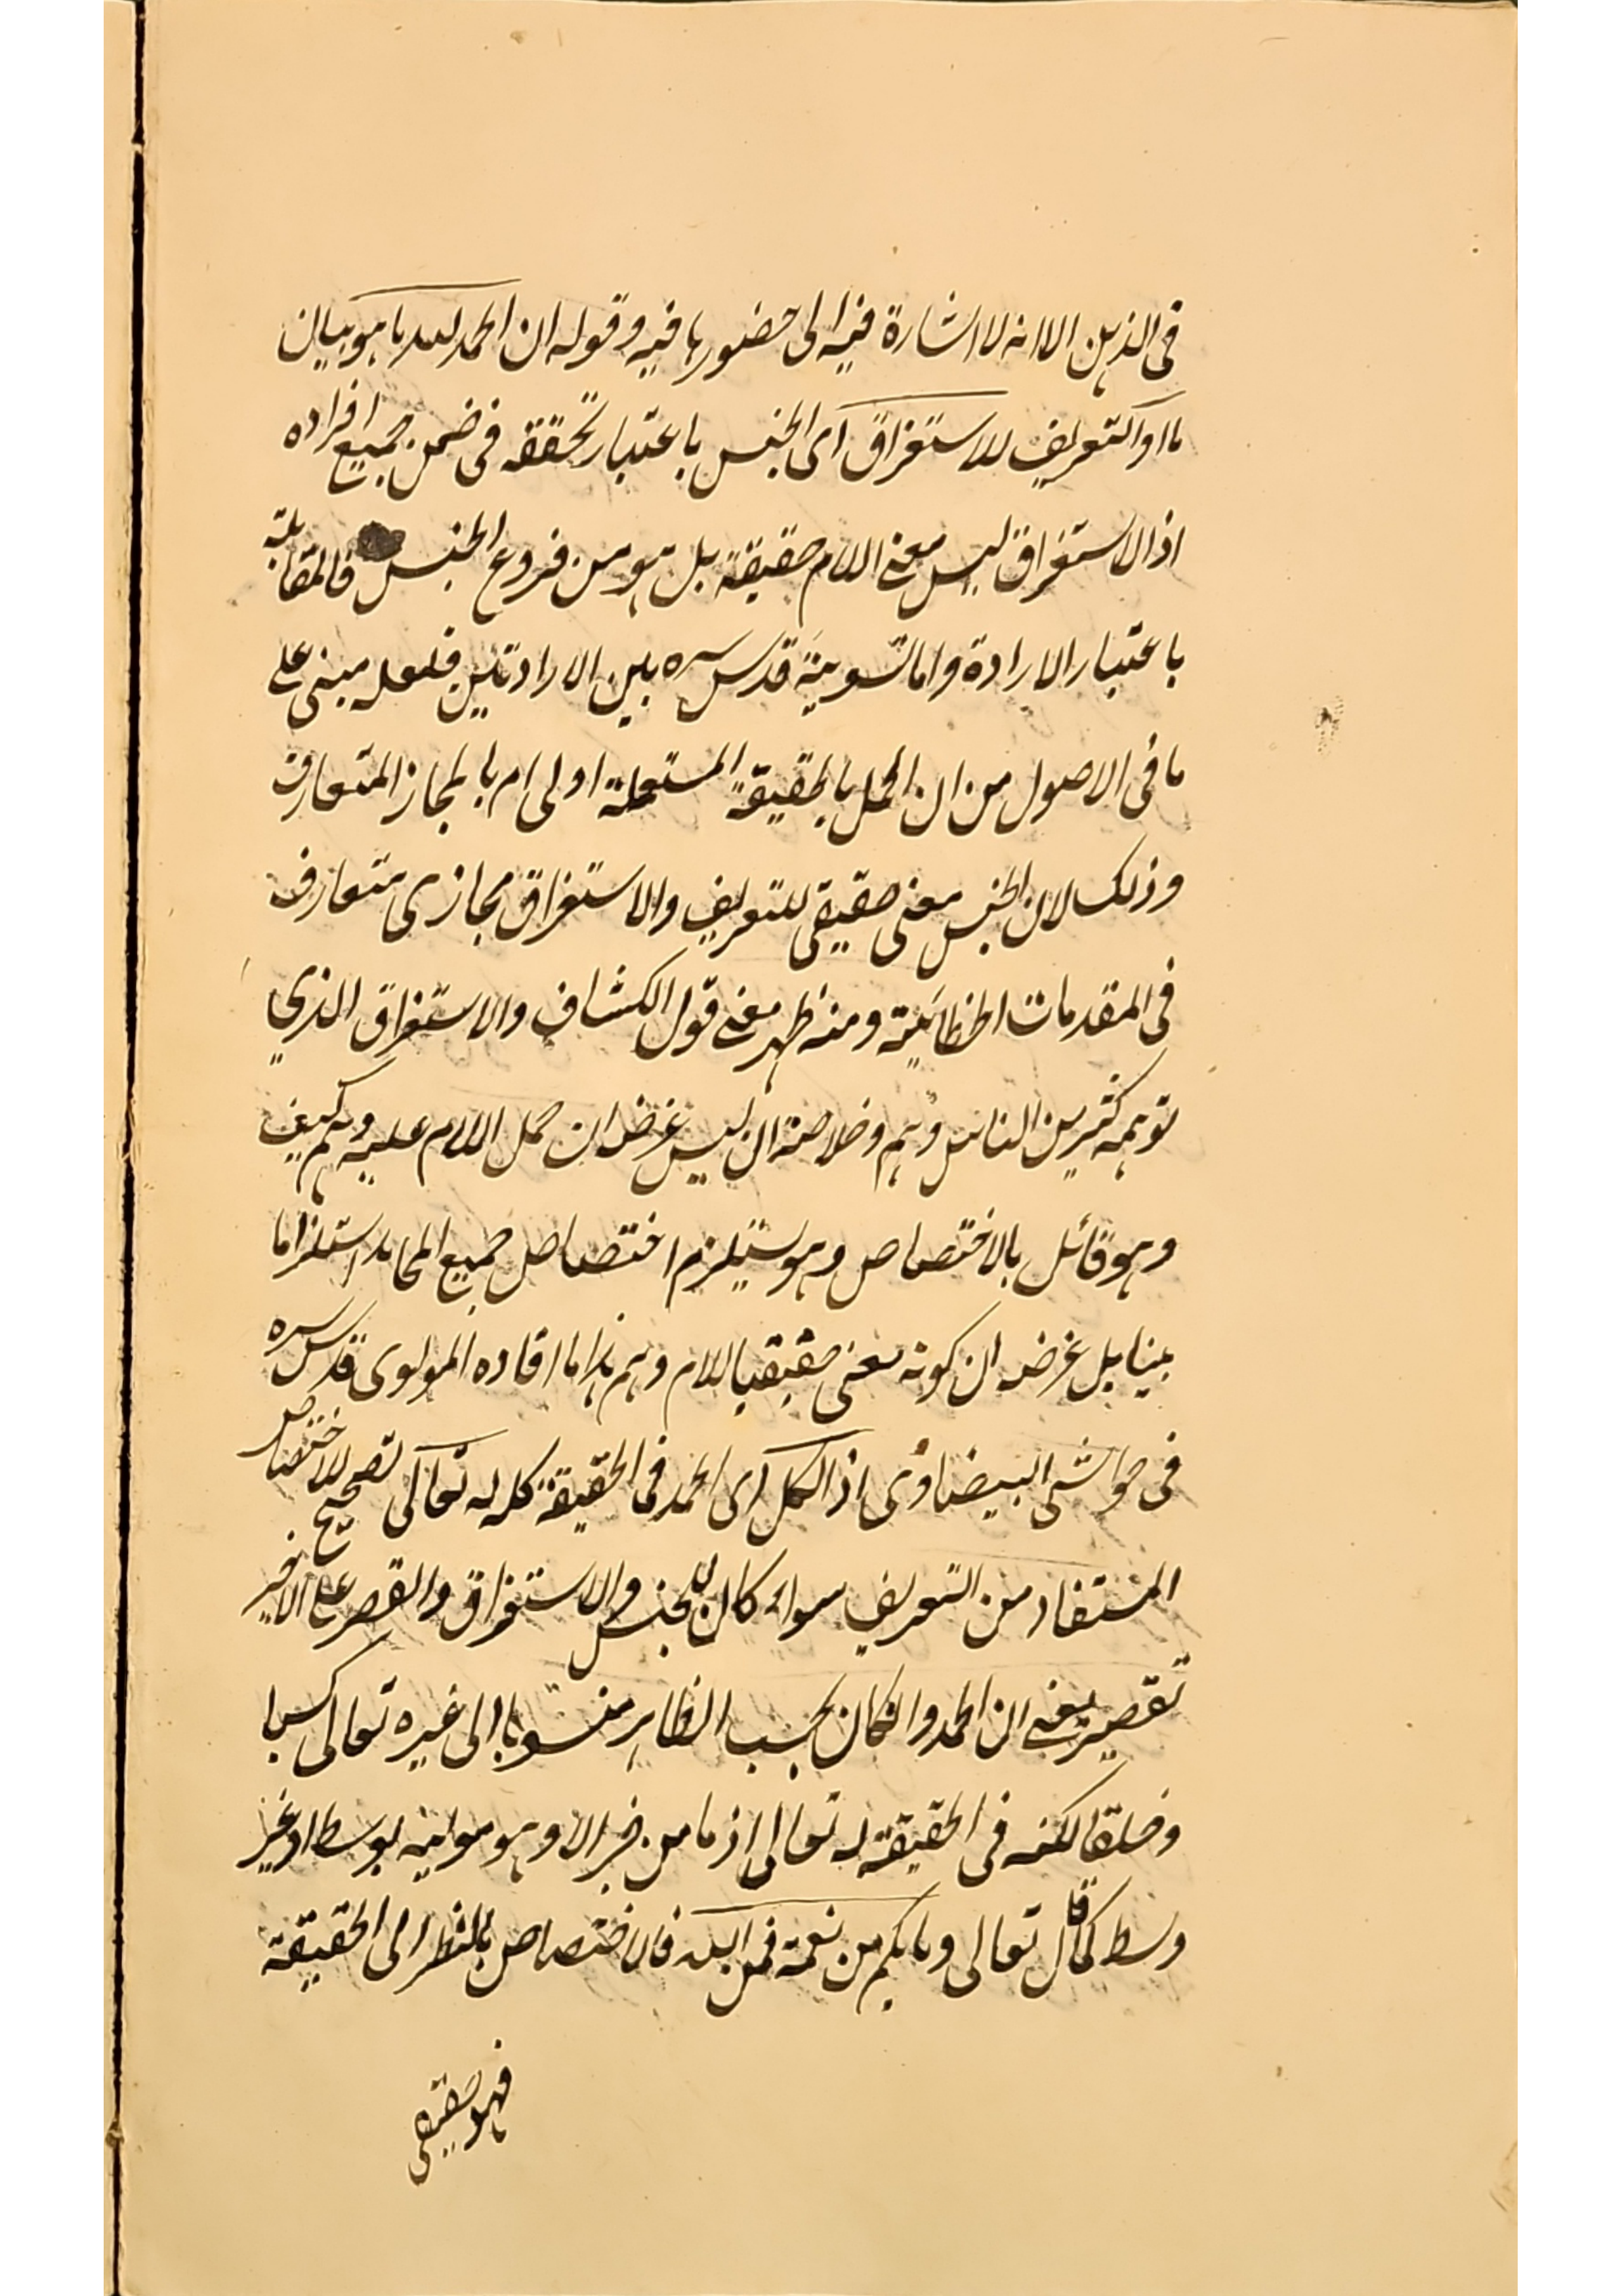 فى الذهن الا انه لا اشارة فيه الى حضورها فيه وقوله ان الحمد لله ما هو بيان
ما او التعريف للاستغراق اى الجنس باعتبار تحققه فى ضمن جميع افراده
اذ الاستغراق ليس معنى اللام حقيقة بل هو من فروع الجنس فالمقابلة
باعتبار الارادة واما تسوية قدس سره بين الارادتين فلعله مبنى على
ما فى الاصول من ان الحمل بالحقيقة المستعملة اولى ام بالمجاز المتعارف
وذلك لان الجنس معنى حقيقى للتعريف والاستغراق مجازى متعارف
فى المقدمات الخطابية ومنه ظهر معنى قول الكشاف والاستغراق الذي
توهمه كثير من الناس وهم وخلاصته ان ليس غرضه ان حمل اللام عليه وهم كيف
وهو قائل بالاختصاص وهو يستلزم اختصاص جميع المحامد استلزاما
بينا بل غرضه ان كونه معنى حقيقيا للام وهم هذا ما افاده المولوى قدس سره
فى حواشى البيضاوى اذ الكل اى الحمد فى الحقيقة كله له تعالى تصحيح للاختصاص
المستفاد من التعريف سواء كان للجنس والاستغراق والقصر على الاخير
تقصير بمعنى ان الحمد وان كان بحسب الظاهر منسوبا الى غيره تعالى كسبا
وخلقا لكنه فى الحقيقة له تعالى اذ ما من خير الا وهو موليه بوسط او بغير
وسط كما قال تعالى وما بكم من نعمة فمن الله فالاختصاص بالنظر الى الحقيقة
فهو حقيقى